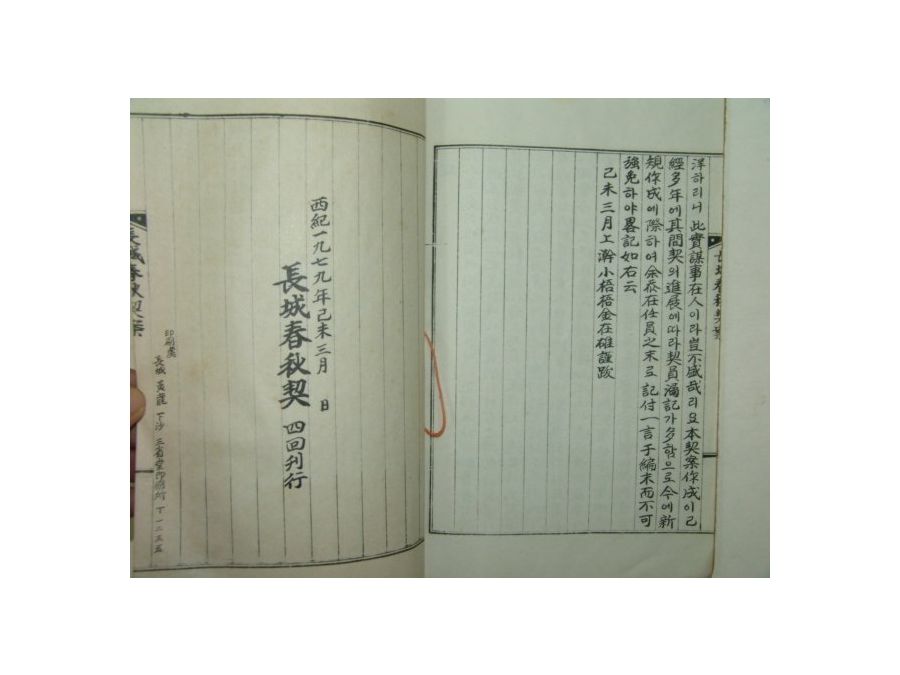 洋하리니 此實謀事在人이라 豈不盛哉리요 本契案作成이 已
經多年에 其間契의 進展에 따라 契員漏記가 多함으로 今에 新
規作成에 際하여 余忝在任員之末로 記付一言于編末而不可
強免하야 畧記如右云
己未三月上澣 小梧 金在確 謹跋
長城春秋契案
西紀一九七九年己未三月 日
長城春秋契 四回刊行
印刷處
長城 黃龍 下沙 三省堂印刷所 T一二三五
長城春秋契案